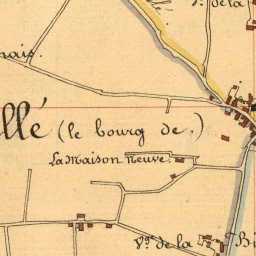 de la
nais.
llé (le bourg de.)
La Maison Neuve
Vge de la Bi